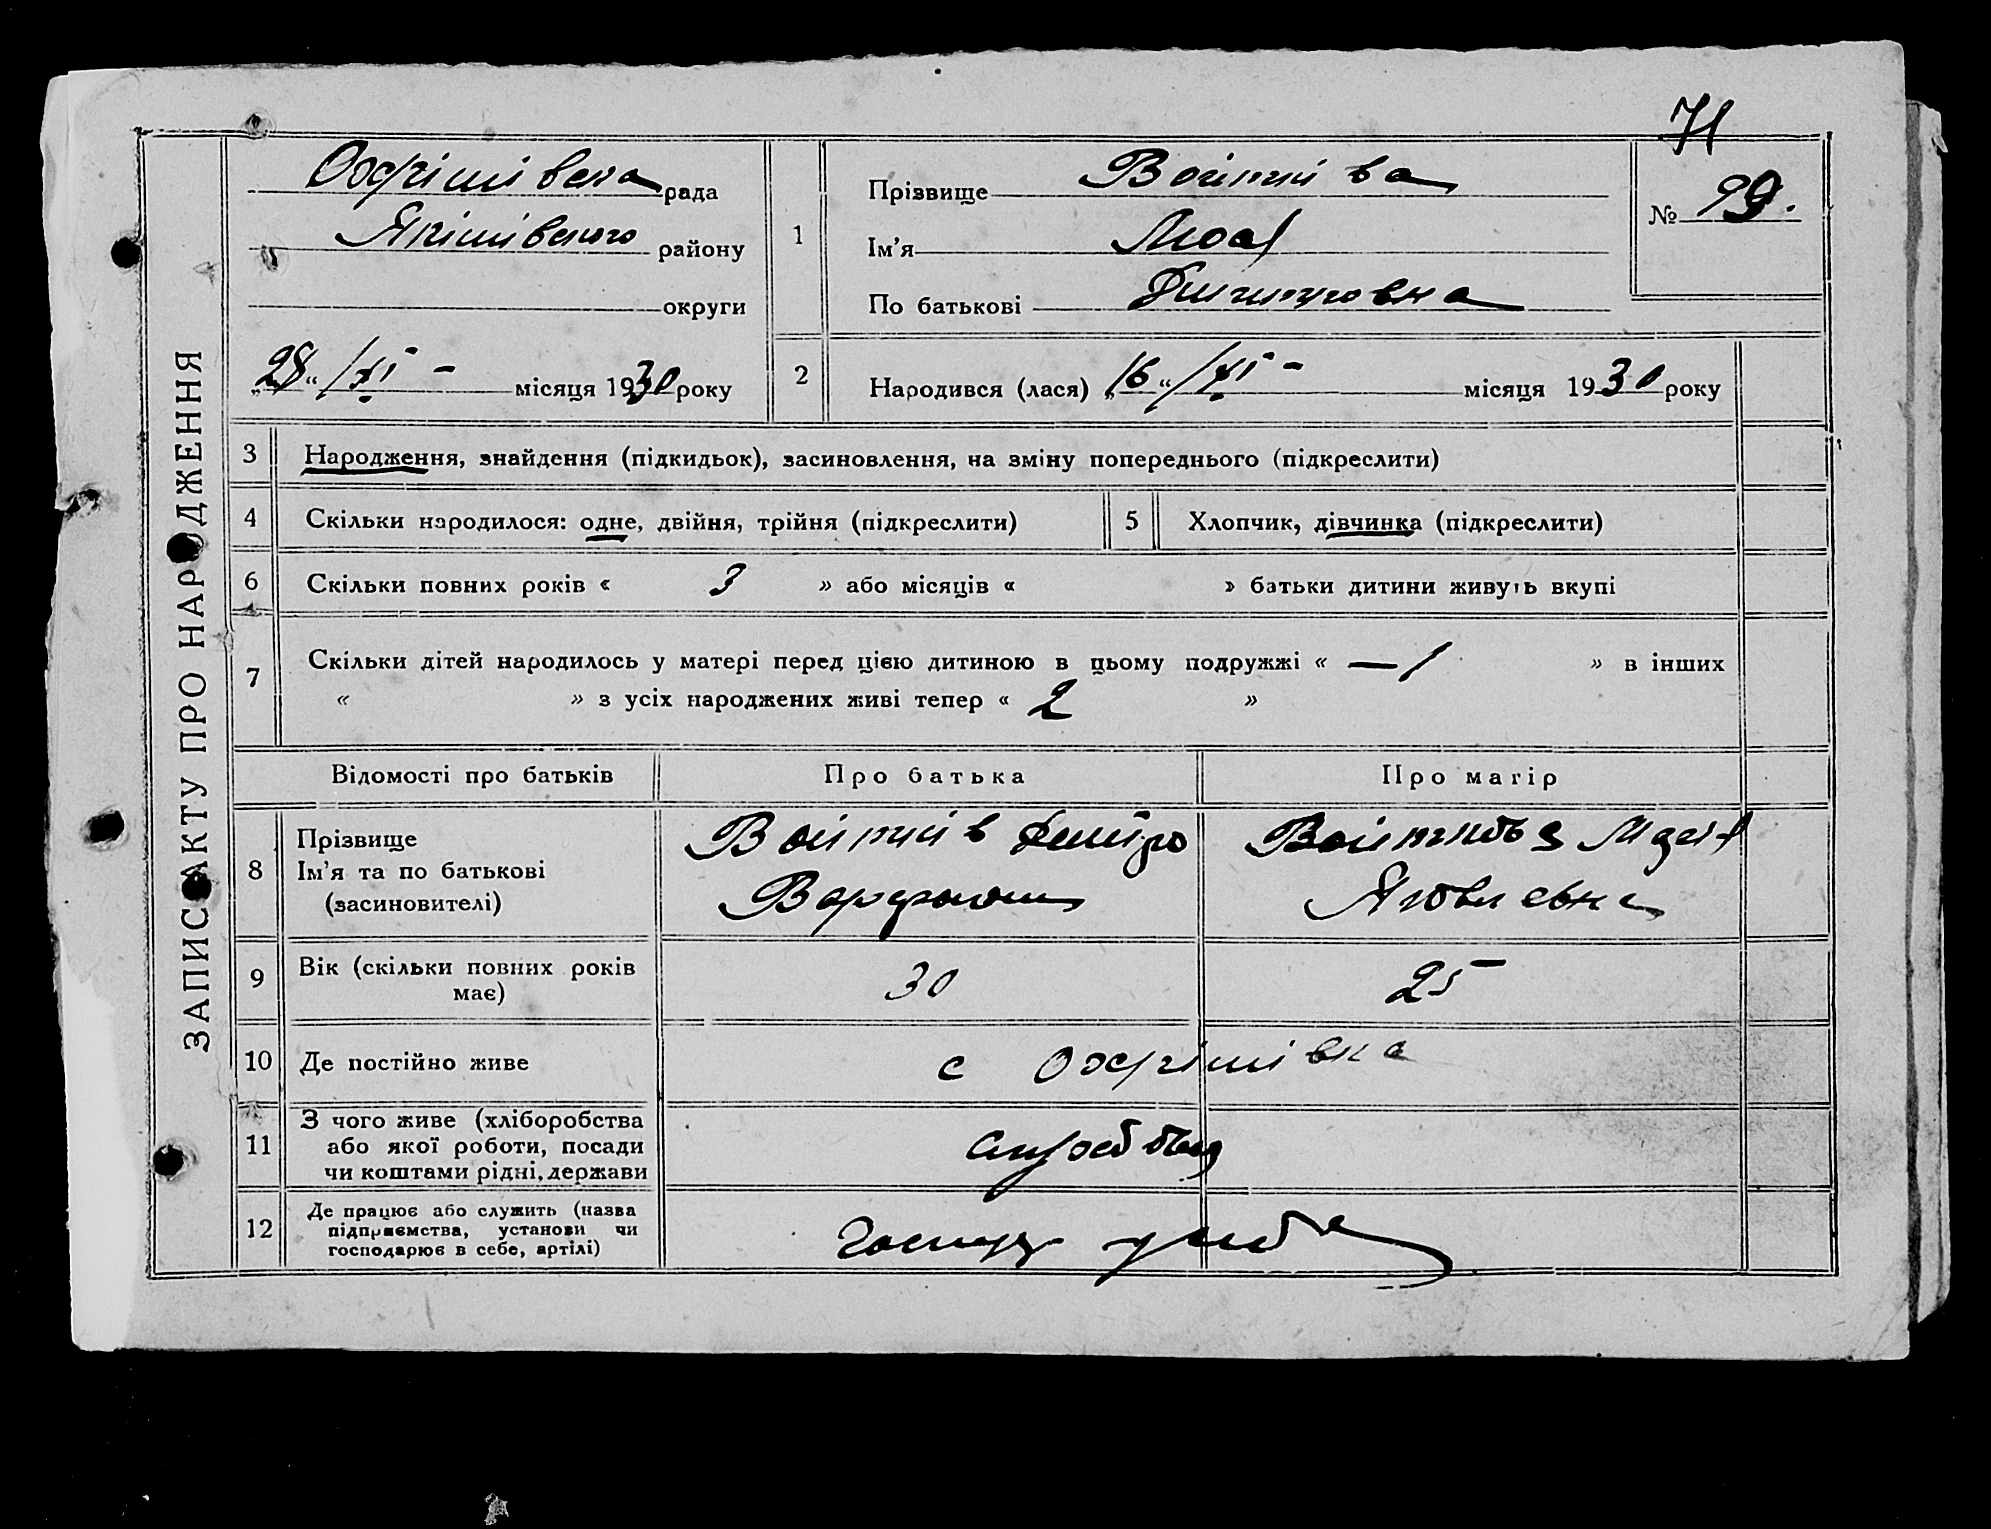 71
Охрімівська рада
Якимівського району
округи
„28“ /XI - місяця 1930 року
1
Прізвище Войтків ва
Ім’я
По батькові Дмитровна
№ 99.
2
Народився (лася) „16“ /XI - місяця 1930 року
ЗАПИС АКТУ ПРО НАРОДЖЕННЯ
3 Народження, знайдення (підкидьок), засиновлення, на зміну попереднього (підкреслити)
4 Скільки народилося: одне, двійня, трійня (підкреслити)
5 Хлопчик, дівчинка (підкреслити)
6 Скільки повних років « 3 » або місяців « » батьки дитини живуть вкупі
7 Скільки дітей народилось у матері перед цією дитиною в цьому подружжі « — 1 » в інших
« » з усіх народжених живі тепер « 2 »
Відомості про батьків
Про батька
Про матір
8
Прізвище
Ім’я та по батькові
(засиновителі)
Войтків Дмитро
Варфолом
Войткова
Яковлевна
9 Вік (скільки повних років
має)
30
25
10 Де постійно живе
с Охрімівка
11
З чого живе (хліборобства
або якої роботи, посади
чи коштами рідні, держави
12
Де працює або служить (назва
підприємства, установи чи
господарює в себе, артілі)